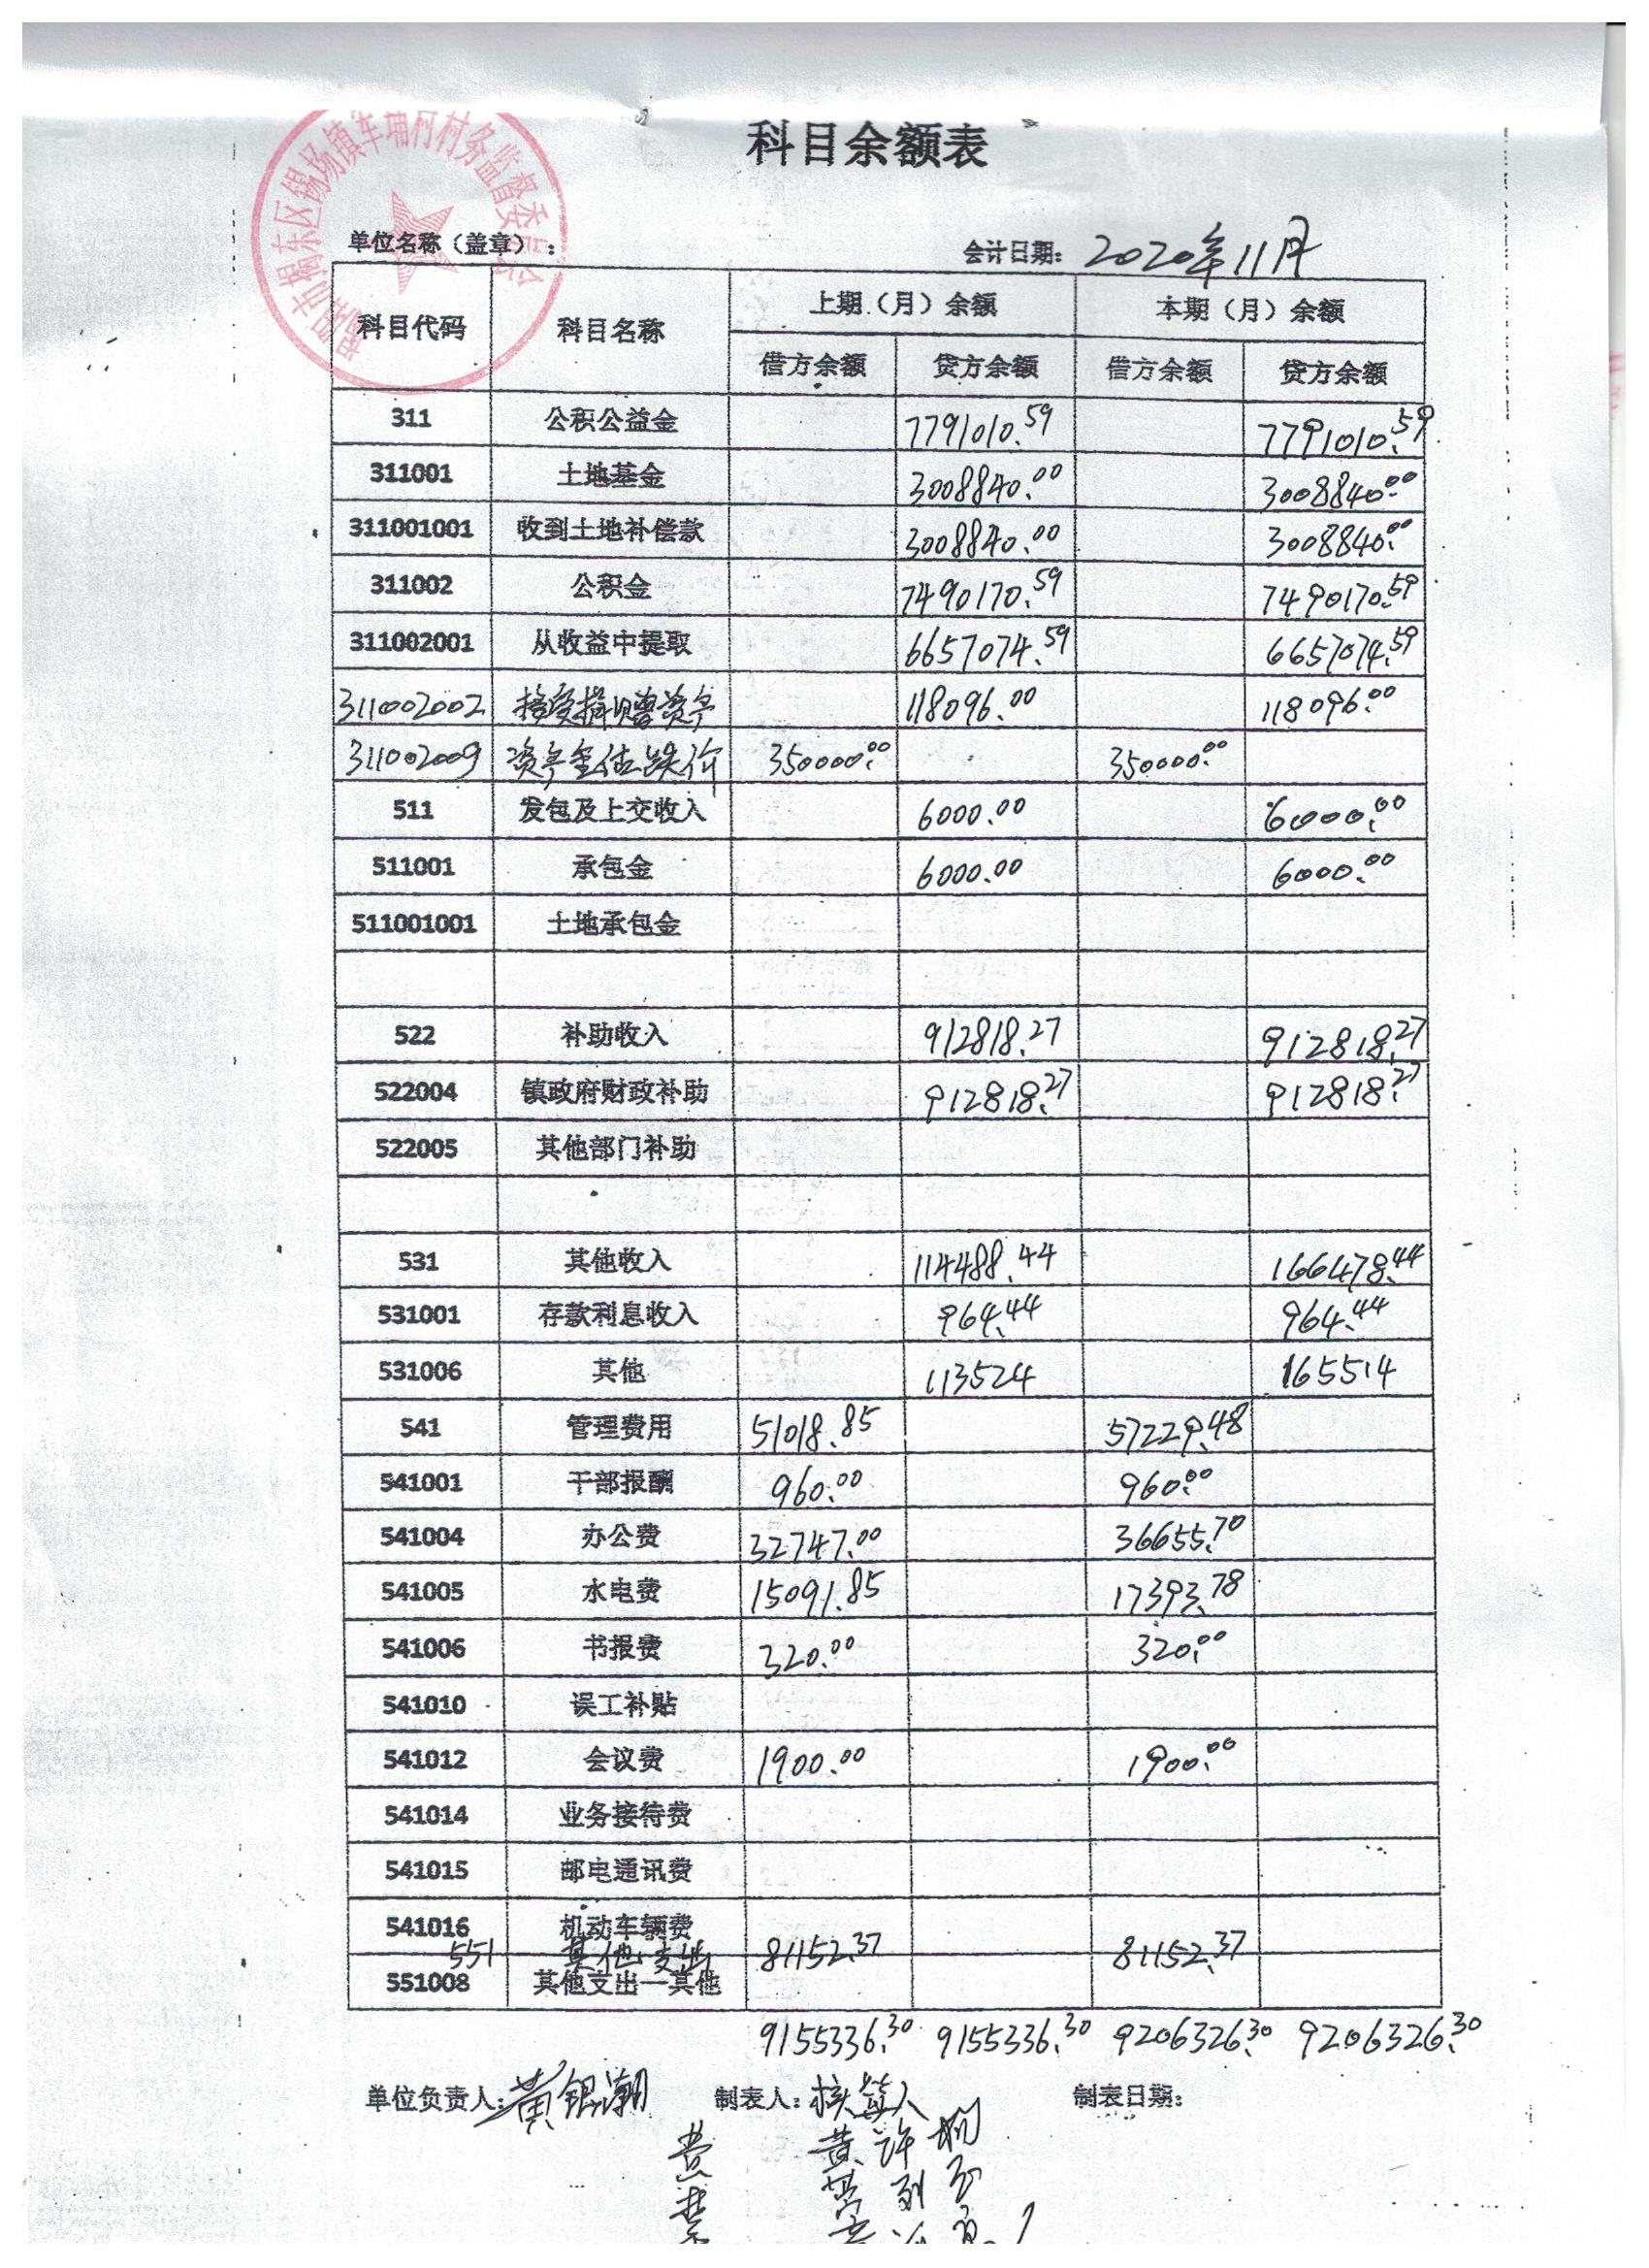 科目余额表
揭阳市揭东区锡场镇车埔柯村村务监督委员会
单位名称（盖章）： 会计日期：2020年11月
科目代码 科目名称 上期（月）余额 本期（月）余额
借方余额 贷方余额 借方余额 贷方余额
311 公积公益金 7791010.59 7791010.59
311001 土地基金 3008840.00 3008840.00
311001001 收到土地补偿款 3008840.00 3008840.00
311002 公积金 7490170.59 7490170.59
311002001 从收益中提取 6657074.59 6657074.59
311002002 接受捐赠资产 118096.00 118096.00
311002009 资产重估跌价 350000.00 350000.00
511 发包及上交收入 6000.00 6000.00
511001 承包金 6000.00 6000.00
511001001 土地承包金
522 补助收入 912818.27 912818.27
522004 镇政府财政补助 912818.27 912818.27
522005 其他部门补助
531 其他收入 114488.44 166478.44
531001 存款利息收入 964.44 964.44
531006 其他 113524 165514
541 管理费用 51018.85 57229.48
541001 干部报酬 960.00 960.00
541004 办公费 32747.00 36655.70
541005 水电费 15091.85 17393.78
541006 书报费 320.00 320.00
541010 误工补贴
541012 会议费 1900.00 1900.00
541014 业务接待费
541015 邮电通讯费
541016 机动车辆费
551 其他支出 81152.37 81152.37
551008 其他支出—其他
9155336.30 9155336.30 9206326.30 9206326.30
单位负责人：黄银潮 制表人：核算人 制表日期：
黄许